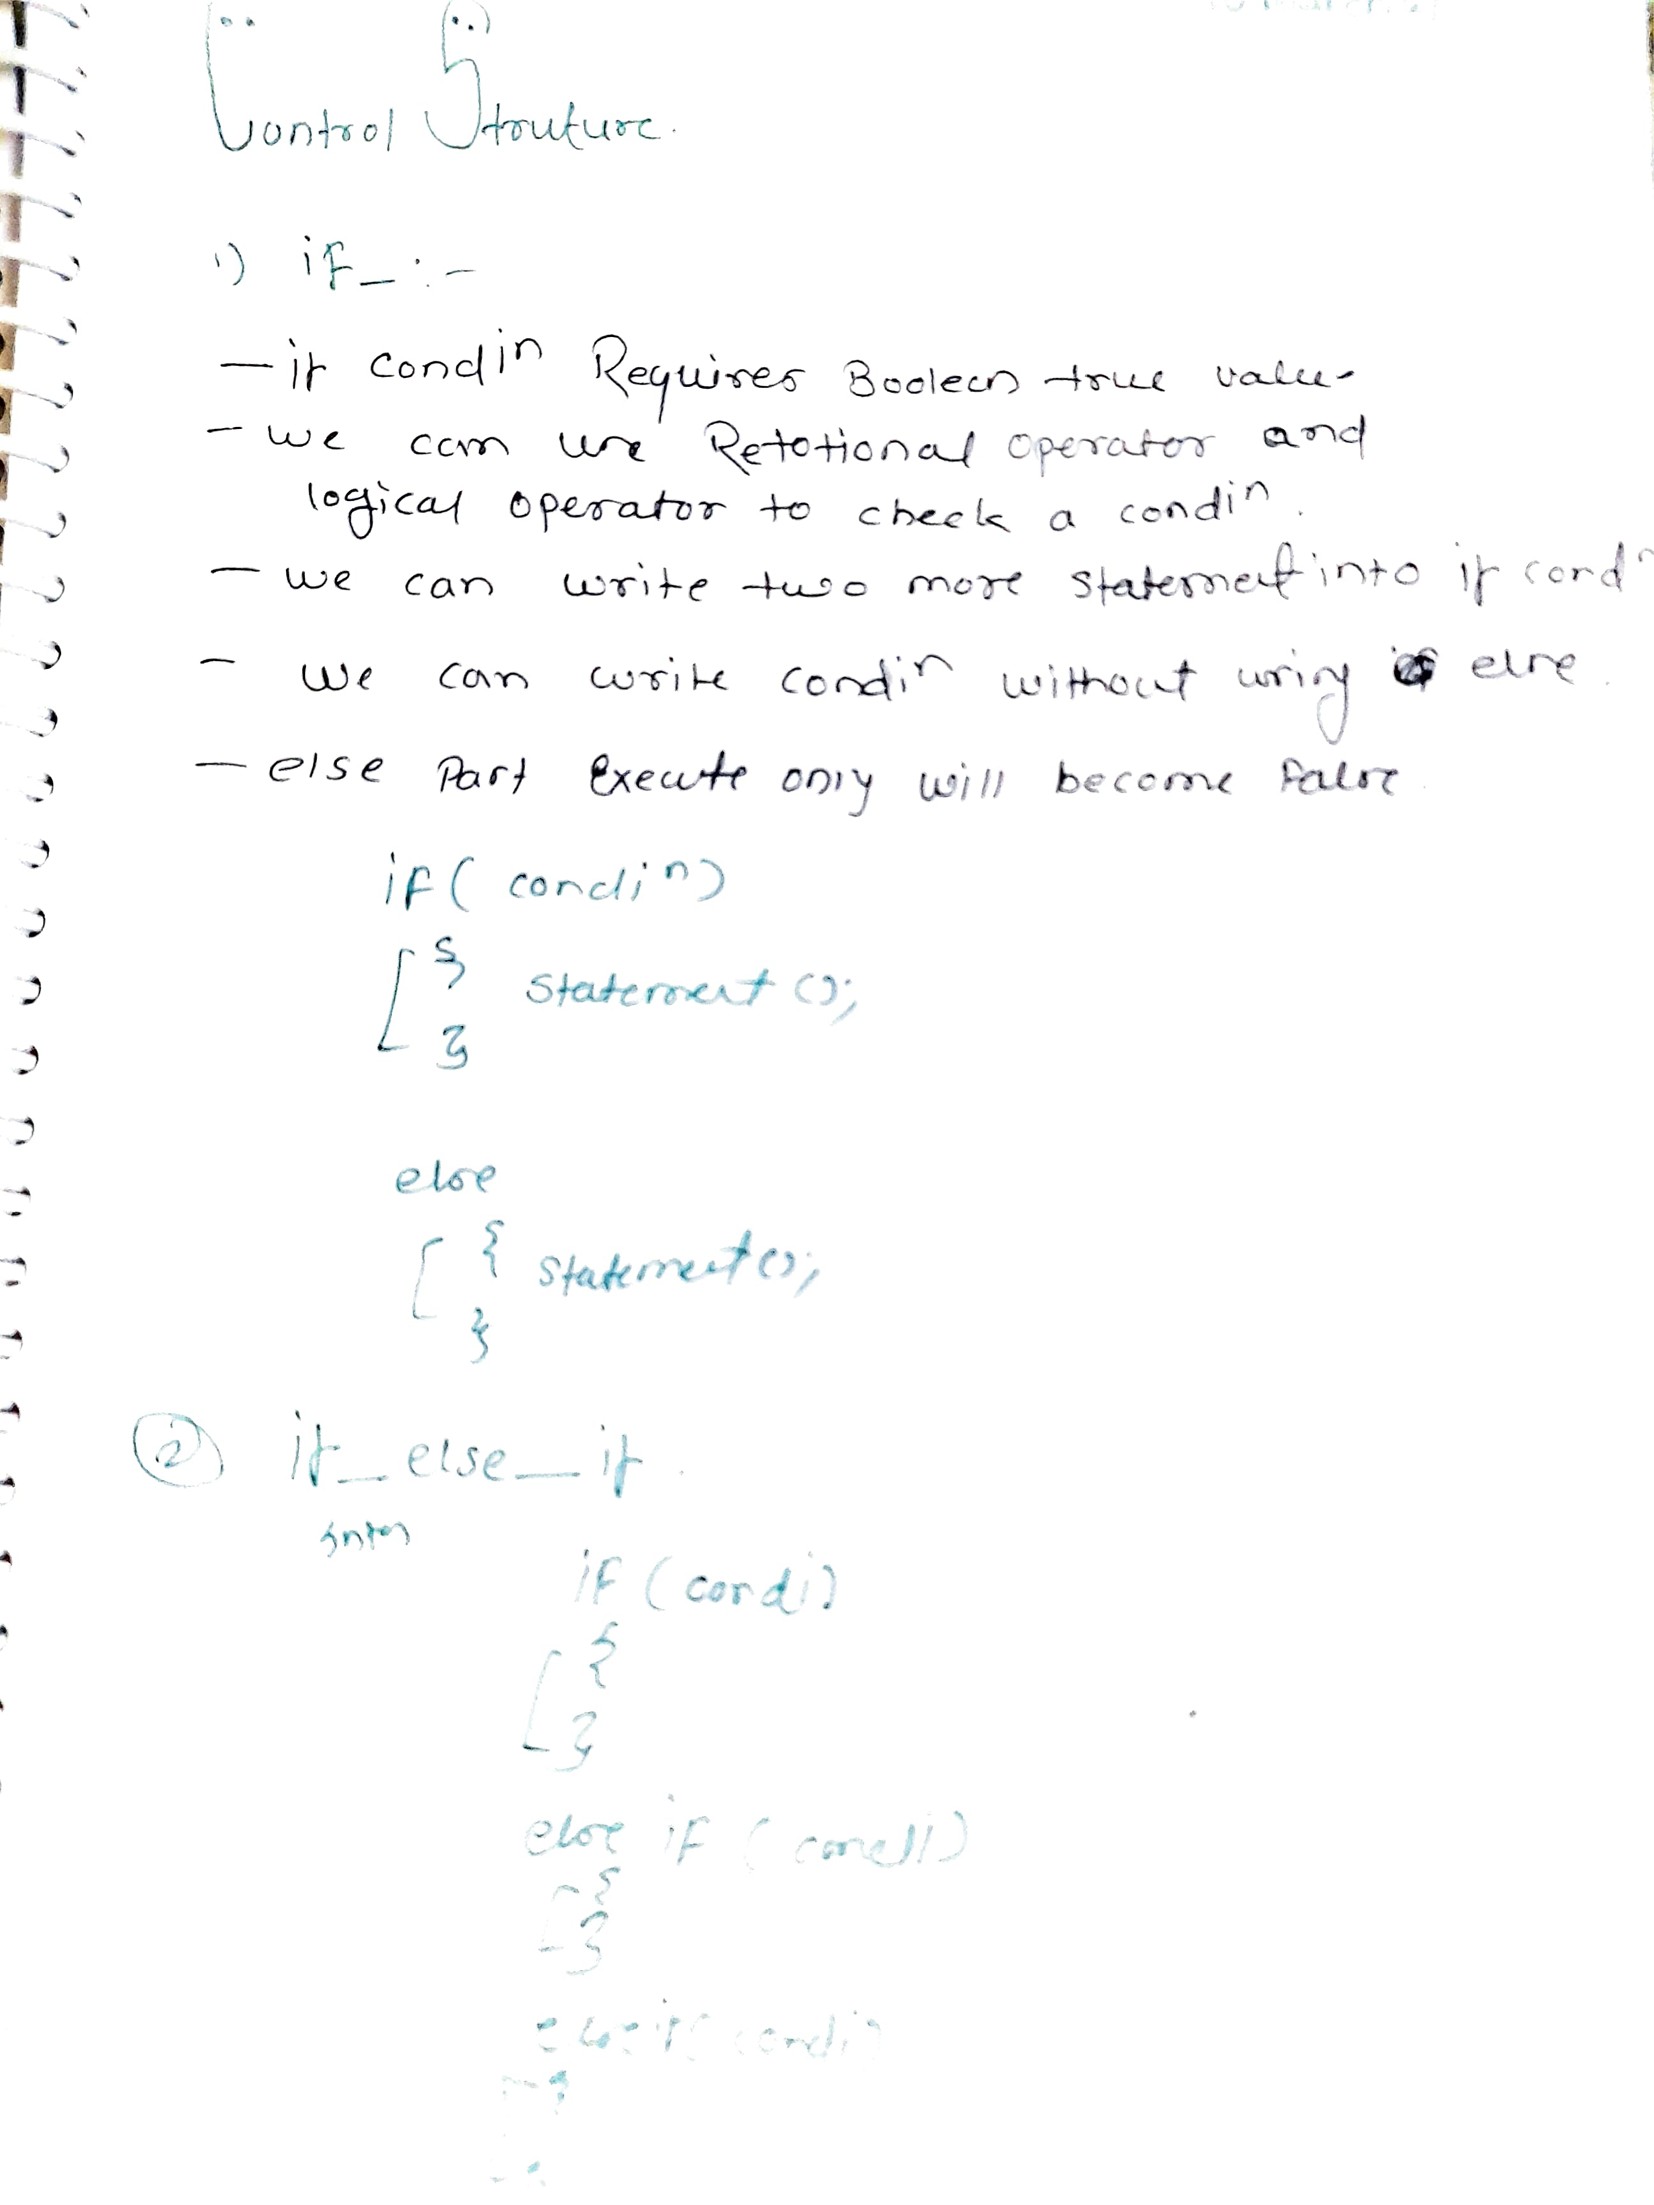 Control Struture.
1) if_:-
— if condiⁿ Requires Boolean true value
- we can use Retotional operator and
logical operator to check a condiⁿ.
— we can write two more statement into if condⁿ
- we can write condiⁿ without using else.
— else Part Execute only will become False
if ( condiⁿ)
{ statement ();
}
else
{ statement ();
}
② if_else_if.
if (condi)
{
}
else if (condi)
{
}
else if (condi